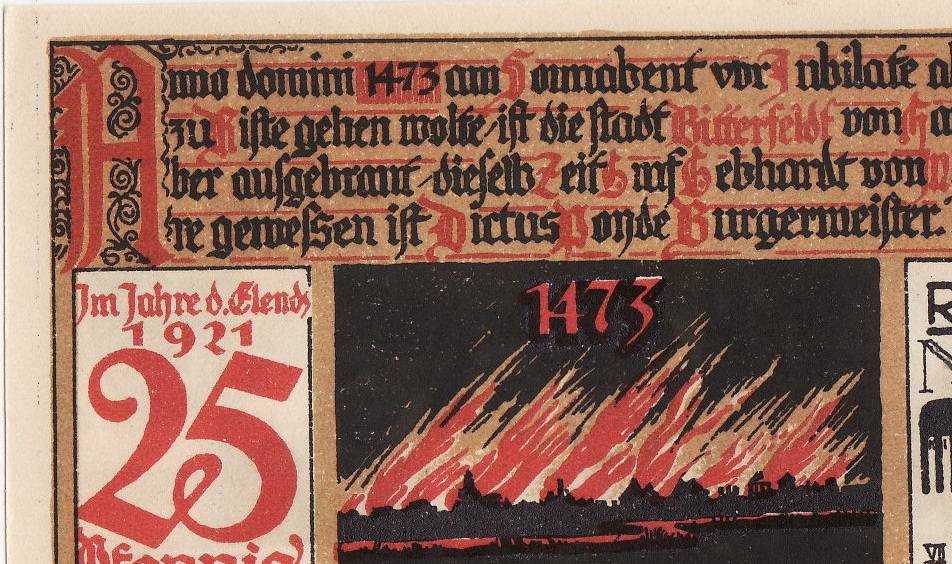 Anno domini 1473 am Sonnabent vor Jubilate
zu Riste gehen wolte / ist die stadt Bitterfeldt von
ber ausgebrant / dieselb Zeit auf Gebhardt von
re gewessen ist Dictus Ponde Burgermeister.
Im Jahre d. Elends
1921
25
Pfennig
1473